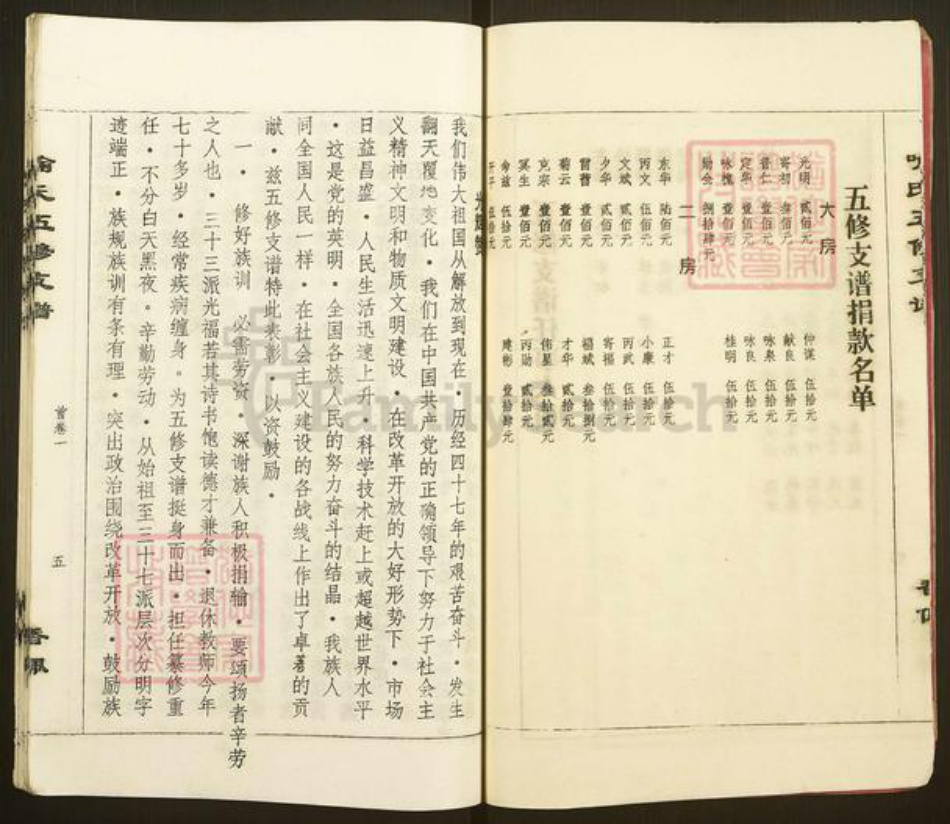 五修支谱捐款名单
大房
光明 贰佰元
寄初 叁佰元
晋仁 壹佰元
定华 壹佰元
咏槐 壹佰元
勋全 捌拾肆元
仲谋 伍拾元
献良 伍拾元
咏泉 伍拾元
咏良 伍拾元
桂明 伍拾元
二房
东华 陆佰元
丙文 伍佰元
文斌 贰佰元
夕华 贰佰元
雷曹 壹佰元
菊云 壹佰元
克宗 壹佰元
冥生 壹佰元
命兹 伍拾元
正才 伍拾元
小康 伍拾元
丙武 伍拾元
寄福 伍拾元
福斌 叁拾捌元
才华 贰拾元
伟星 叁拾贰元
丙勋 贰拾元
建彬 壹拾肆元
我们伟大祖国从解放到现在·历经四十七年的艰苦奋斗·发生
翻天覆地变化·我们在中国共产党的正确领导下努力于社会主
义精神文明和物质文明建设·在改革开放的大好形势下·市场
日益昌盛·人民生活迅速上升·科学技术赶上或超越世界水平
·这是党的英明·全国各族人民的努力奋斗的结晶·我族人
同全国人民一样·在社会主义建设的各战线上作出了卓著的贡
献·兹五修支谱特此表彰·以资鼓励·
一·修好族训 必需劳资·深谢族人积极捐输·要颂扬者辛劳
之人也·三十三派光福若其诗书饱读德才兼备·退休教师今年
七十多岁·经常疾病缠身·为五修支谱挺身而出·担任纂修重
任·不分白天黑夜。辛勤劳动·从始祖至三十七派层次分明字
迹端正·族规族训有条有理·突出政治围绕改革开放·鼓励族
五修支谱
首卷一
五
FamilySearch